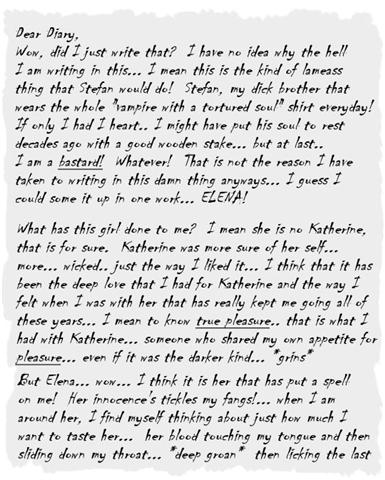 Dear Diary,
Wow, did I just write that? I have no idea why the hell
I am writing in this... I mean this is the kind of lameass
thing that Stefan would do! Stefan, my dick brother that
wears the whole "vampire with a tortured soul" shirt everyday!
If only I had I heart.. I might have put his soul to rest
decades ago with a good wooden stake... but at last..
I am a bastard! Whatever! That is not the reason I have
taken to writing in this damn thing anyways... I guess I
could some it up in one work... ELENA!
What has this girl done to me? I mean she is no Katherine,
that is for sure. Katherine was more sure of her self...
more... wicked.. just the way I liked it... I think that it has
been the deep love that I had for Katherine and the way I
felt when I was with her that has really kept me going all of
these years... I mean to know true pleasure.. that is what I
had with Katherine... someone who shared my own appetite for
pleasure... even if it was the darker kind... *grins*
But Elena... wow... I think it is her that has put a spell
on me! Her innocence's tickles my fangs!... when I am
around her, I find myself thinking about just how much I
want to taste her... her blood touching my tongue and then
sliding down my throat... *deep groan* then licking the last